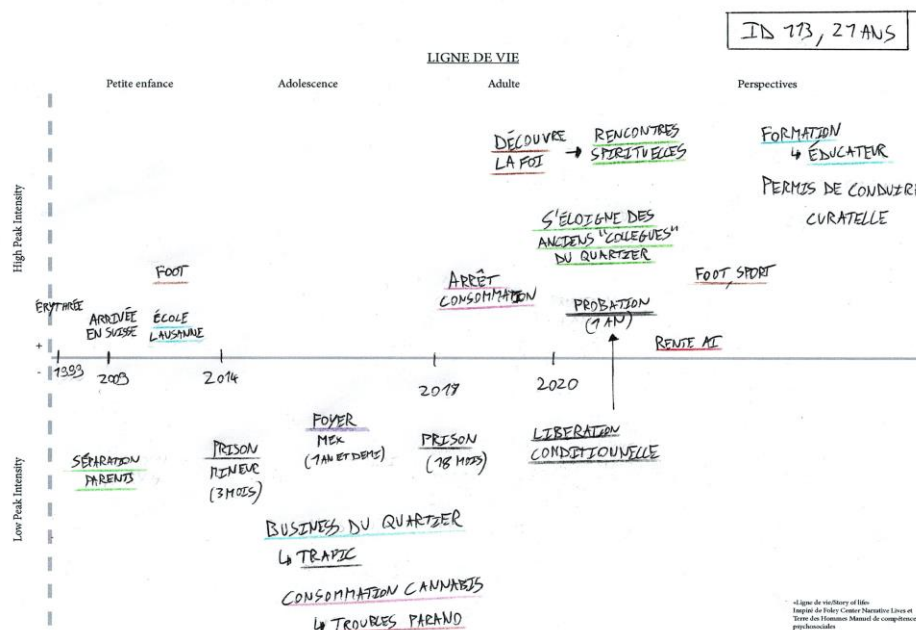 ID 113, 21 ANS
LIGNE DE VIE
Petite enfance
Adolescence
Adulte
Perspectives
High Peak Intensity
DÉCOUVRE
LA FOI →
RENCONTRES
SPIRITUELLES
FORMATION
↳ ÉDUCATEUR
PERMIS DE CONDUIRE
CURATELLE
S'ÉLOIGNE DES
ANCIENS "COLLEGUES"
DU QUARTIER
FOOT
ARRÊT
CONSOMMATION
FOOT, SPORT
ÉRYTHRÉE
ARRIVÉE
EN SUISSE
ÉCOLE
LAUSANNE
PROBATION
(1 AN)
RENTE AI
+
-
2009
2014
2020
Low Peak Intensity
SÉPARATION
PARENTS
PRISON
MINEUR
(3 MOIS)
FOYER
MEX
(1 AN ET DEMI)
PRISON
(18 MOIS)
LIBERATION
CONDITIONNELLE
BUSINESS DU QUARTIER
↳ TRAFIC
CONSOMMATION CANNABIS
↳ TROUBLES PARANO
«Ligne de vie/Story of life»
Inspiré de Foley Center Narrative Lives et
Terre des Hommes Manuel de compétence
psychosociales